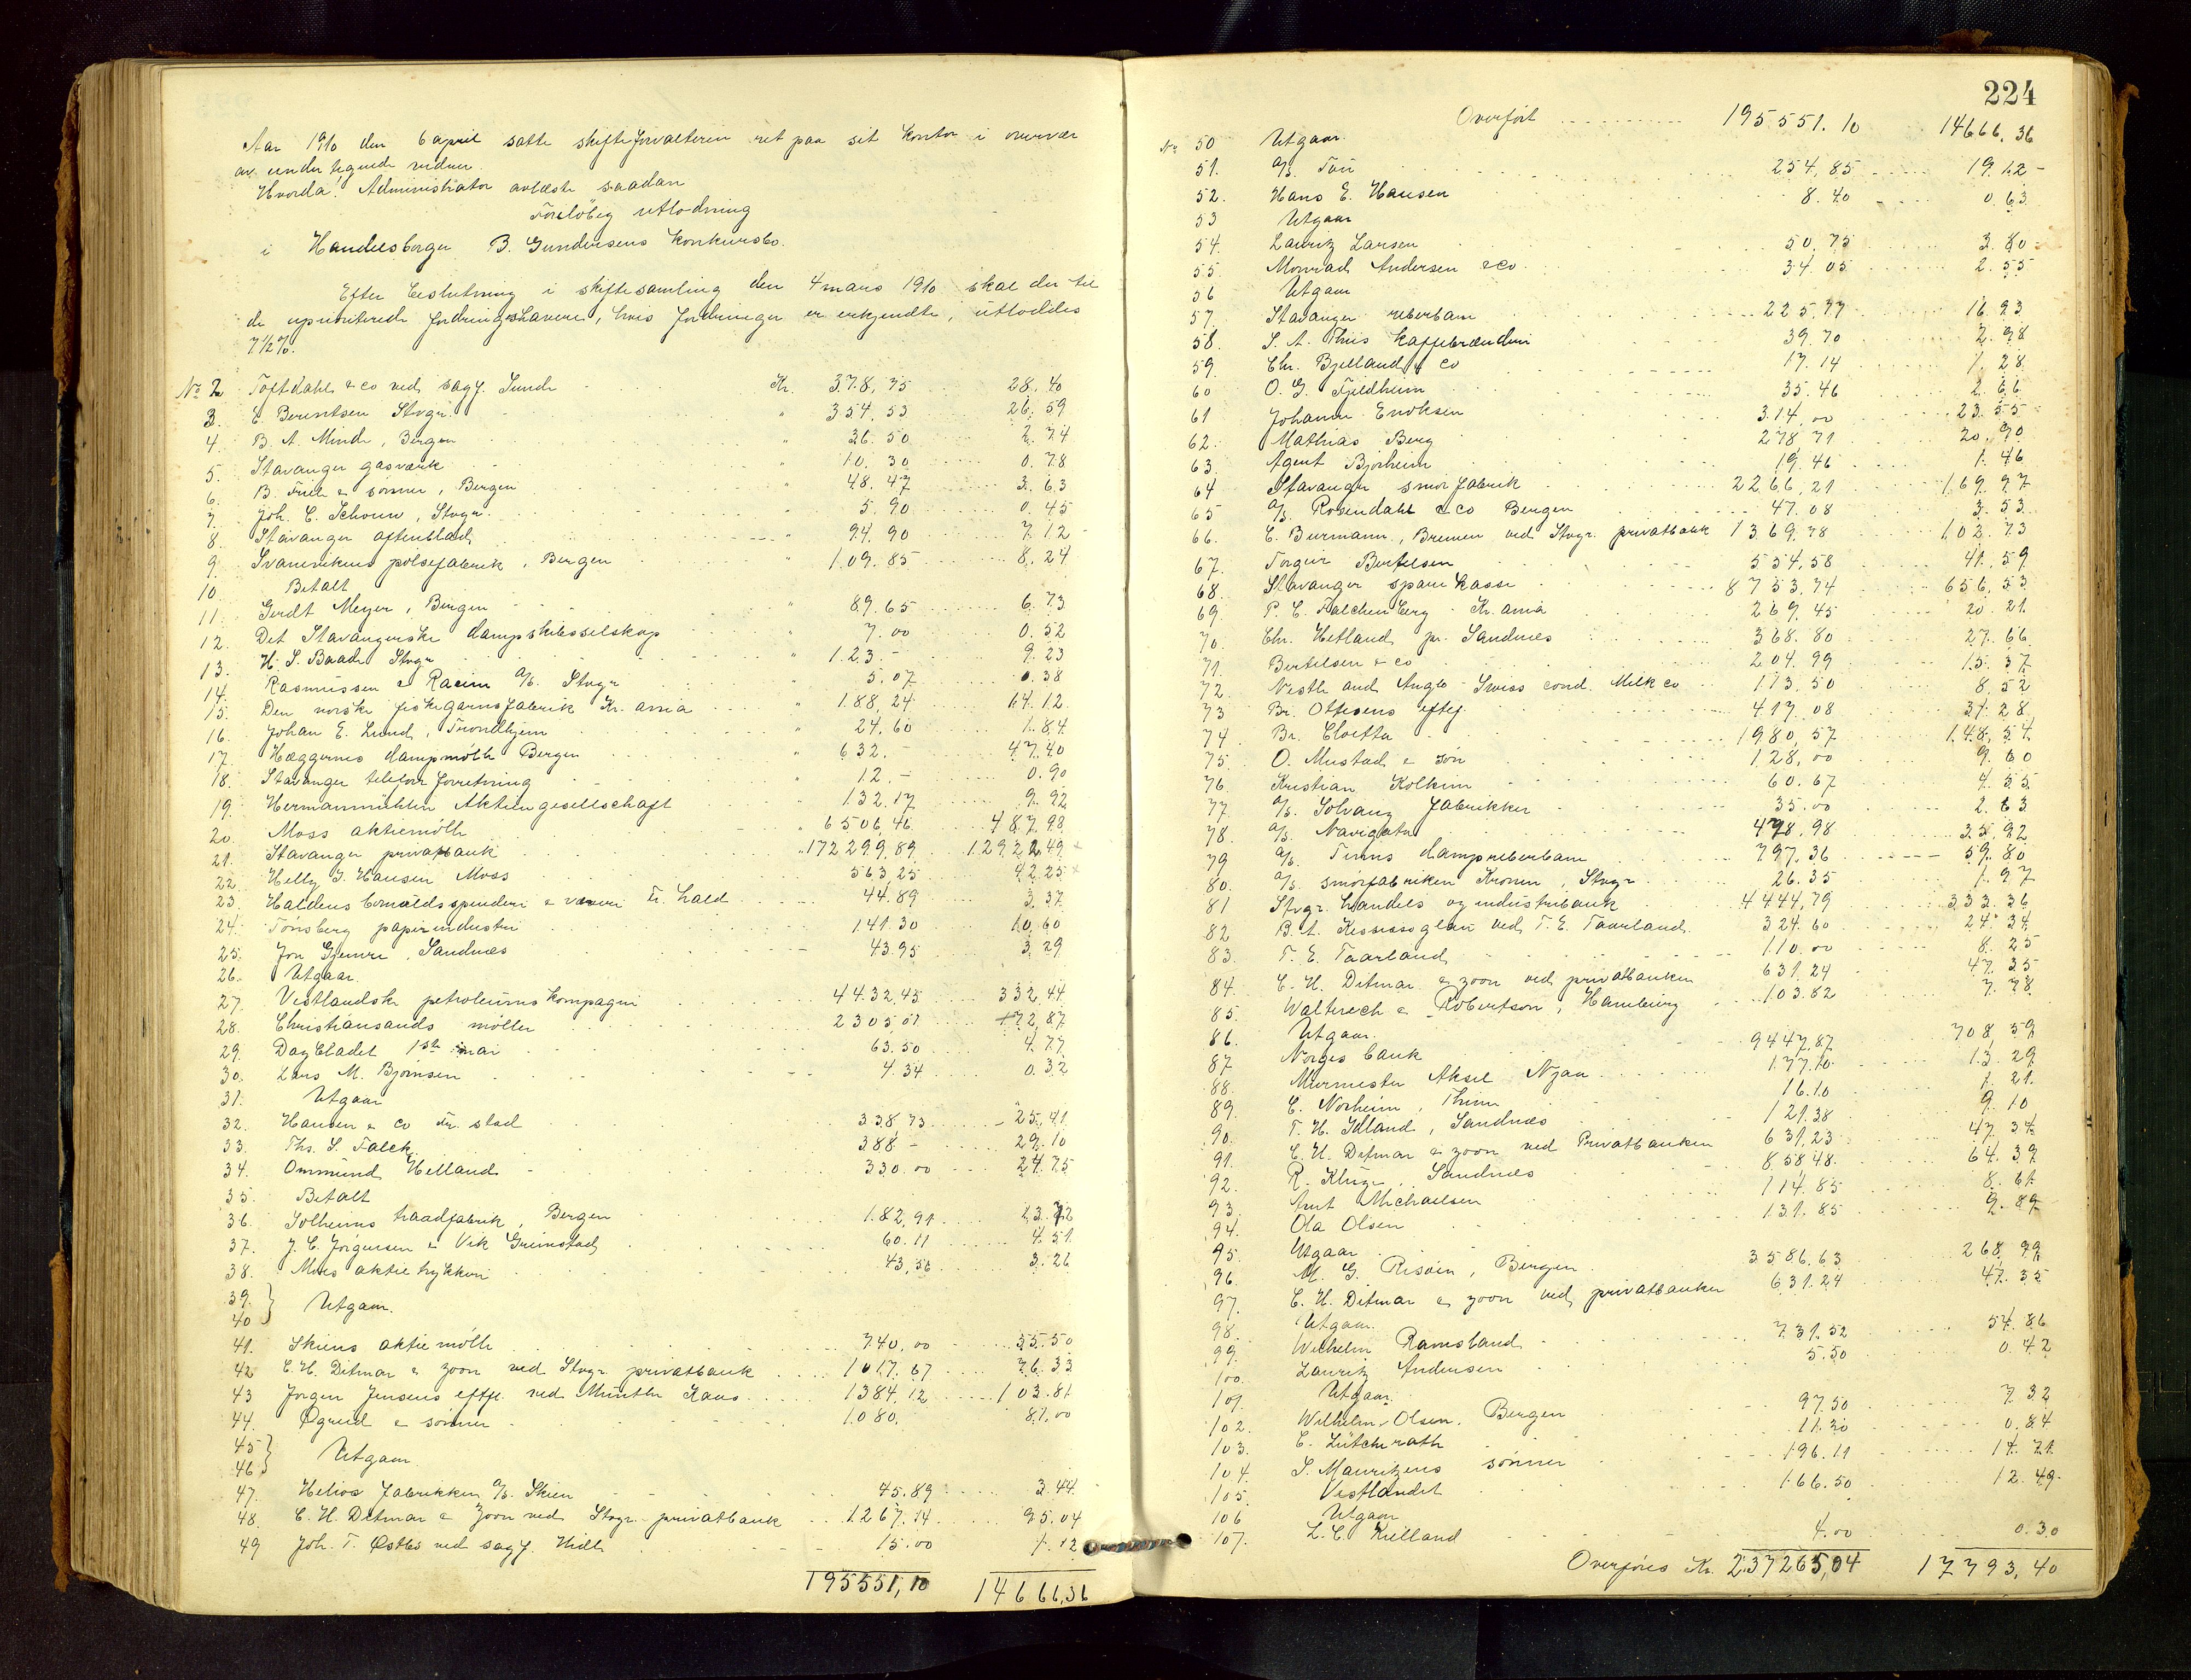 Aar 1910 den 6 april satte skifteforvalteren ret paa sit kontor i overvær
av undertegnede vidner
Hvorda: Administrator avlæste saadan
Foreløbig utlodning
i Handelsborger B. Gundersens konkursbo.
Efter beslutning i skiftesamling den 4 mars 1910 skal der til
de uprioriterede fordringshavere, hvis fordringer er erkjendte, utloddes
7 1/2 %.
No 2 Toftdahl & co ved sagf. Sunde Kr. 378,75 28,40
3. C. Berentsen Stvgr. " 354,53 26,59
4. B. A. Minde, Bergen " 36.50 2.74
5. Stavanger gasværk " 10.30 0.78
6. B. Friele & sønner, Bergen " 48.47 3.63
7. Joh. C. Schouw, Stvgr. " 5.90 0.45
8. Stavanger aftenblad " 94.90 7.12
9. Svanevikens pølsefabrik, Bergen " 109.85 8.24
10. Betalt
11. Gerdt Meyer, Bergen " 89.65 6.73
12. Det Stavangerske dampskibsselskap 7.00 0.52
13. H. S. Baade Stvgr " 123.- 9.23
14. Rasmussen & Racine A/S. Stvgr 5.07 0.38
15. Den norske fiskegarnsfabrik Kr.ania " 188,24 14.12
16. Johan E. Lund, Trondhjem " 24.60 1.84
17. Hæggernes dampmølle Bergen " 632.- 47.40
18. Stavanger telefon forretning " 12.- 0.90
19. Hermannmühlen Aktiengesellschaft 132.17 9.92
20. Moss aktiemølle " 6506,46 487.98
21. Stavanger privatbank " 172299.89 12922.49
22. Helly J. Hansen Moss 563,25 42.25
23. Haldens bomuldsspinderi & væveri Fr. hald 44.89 3.37
24. Tønsberg papirindustri 141.30 10.60
25. Jon Gjemre, Sandnes 43.95 3.29
26. Utgaar.
27. Vestlandske petroleumskompagni 4432,45 332,44
28. Christianssands møller 2305,01 172,87
29. Dagbladet 1ste mai 63.50 4.77
30. Lars M. Bjørnsen 4.34 0.32
31. Utgaar
32. Hansen & co Fr. stad 338.73 25.41
33. Ths. S. Falck 388 - 29.10
34. Ommund Helland 330.00 24.75
35. Betalt
36. Solheims traadfabrik, Bergen 182,91 13.72
37. J. C. Jørgensen & Vik Grimstad 60.11 4.51
38. Moss aktietrykkeri 43,56 3.26
39.
40 } Utgaar.
41. Skiens aktiemølle 740,00 55.50
42 C. H. Ditmar & zoon ved Stvgr privatbank 1017.67 76.33
43 Jørgen Jensens eftf. ved Münther Kaas 1384.12 103.81
44. Øgreid & sønner 1080. 81.00
45
46 } Utgaar
47. Helios fabrikken A/S. Skien 45.89 3.44
48. C. H. Ditmar & Zoon ved Stvgr. privatbank 1267.14 95.04
49 Joh. T. Østbø ved sagf. Hidle 15.00 1.12
195551,10 14666,36
224
Overført 195551.10 14666.36
No 50 Utgaar.
51. A/S. Tou 254,85 19.12
52. Hans E. Hansen 8.40 0.63
53 Utgaar
54. Lauritz Larsen 50.75 3.80
55. Monrad Andersen & co 34.05 2.55
56 Utgaar
57. Stavanger reberbane 225.77 16.93
58. S. A. Thiis kaffebrænderi 39.70 2.98
59. Chr. Bjelland & co 17.14 1.28
60 O. G. Fjeldheim 35.46 2.66
61 Johannes Enoksen 314.00 23.55
62. Mathias Berg 278 71 20.90
63. Agent Bjørheim 19.46 1.46
64 Stavanger smørfabrik 2266,21 169.97
65 A/S. Rosendahl & co Bergen 47.08 3.53
66. C. Buermann, Bremen ved Stvgr. privatbank 1369.78 102.73
67. Torgeir Bertelsen 554.58 41.59
68. Stavanger sparekasse 8753,74 656,53
69. P. C. Falchenberg - Kr.ania 269.45 20.21
70. Chr. Hetland pr. Sandnes 368.80 27.66
71. Bertelsen & co 204.99 15.37
72. Nestle and Anglo - Swiss cond. Milk co 113.50 8.52
73 Br. Ottesens eftf. 417.08 31.28
74 Br. Cloetta 1980,57 148,54
75. O. Mustad & søn 128,00 9.60
76. Kristian Kolkinn 60.67 4.55
77. A/S. Solvang fabrikker 35.00 2.63
78. A/S. Navigatør 478.98 35.92
79 A/S. Finns dampreberbane 797.36 59.80
80. A/S. smørfabriken Kronen, Stvgr 26.35 1.97
81 Stvgr. handels og industribank 4444,79 333.36
82 B. A. Kessissoglou ved T. E. Taarland 324.60 24.34
83. T. E. Taarland 110.00 8.25
84. C. H. Ditmar & zoon ved privatbanken 631.24 47.35
85. Walterech & Robertson, Hamburg 103.82 7.78
86. Utgaar.
87 Norges bank 9447,87 708,59
88. Murmester Aksel Njaa 177.10 13.29
89. C. Norheim, Thime 16.10 1.21
90. T. H. Idland, Sandnes 121.38 9.10
91. C. H. Ditmar & zoon ved Privatbanken 631,23 47.34
92. R. Kluge, Sandnes 858.48 64.39
93. Arnt Michaelsen 114.85 8.61
94. Ola Olsen 131.85 9.89
95. Utgaar
96. M. G. Risøen, Bergen 3586,63 268,99
97. C. H. Ditmar & zoon ved privatbanken 631.24 47.35
98. Utgaar.
99. Wilhelm Ramsland 731.52 54.86
100. Lauritz Andersen 5.50 0.42
101. Utgaar.
102. Wilhelm Olsen, Bergen 97.50 7.32
103. C. Lütcherath 11.20 0.84
104. S. Mauritzens sønner 196.11 14.71
105. Vestlandet 166.50 12.49
106 Utgaar
107. L. C. Kielland 4.00 0.30
Overføres Kr. 237265,04 17793,40